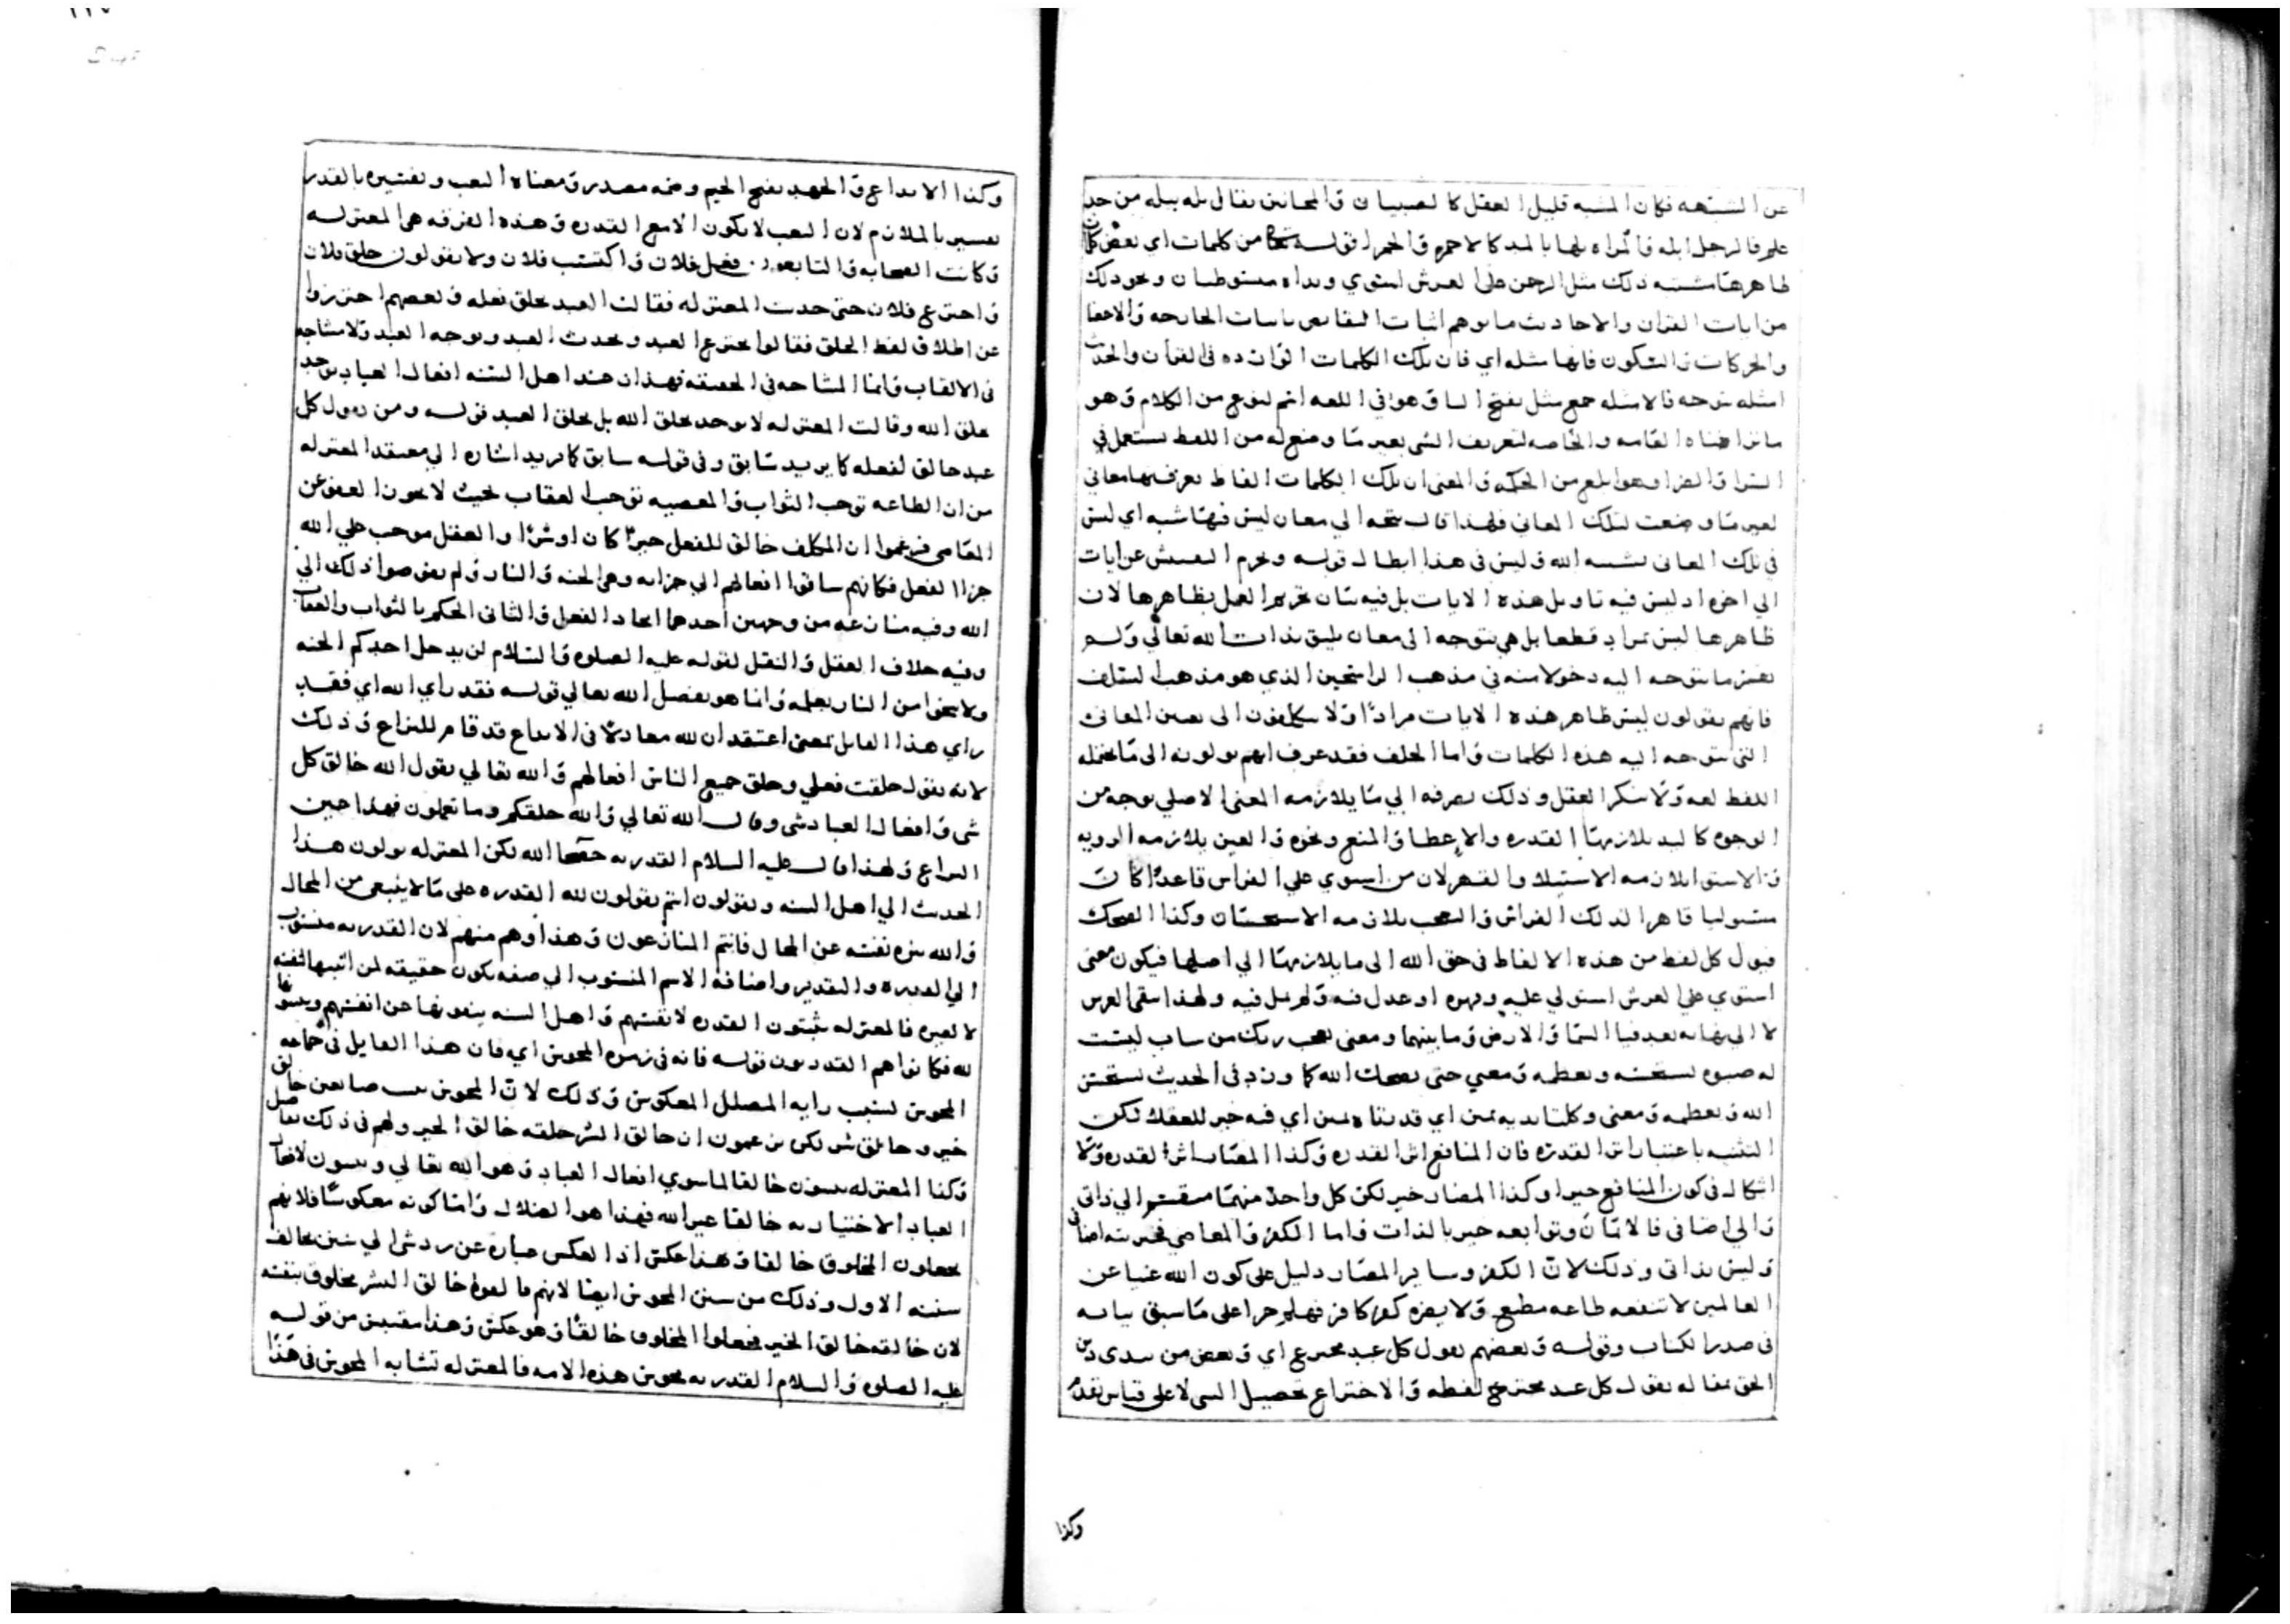 عن الشبهه فكان المشبه قليل العقل كالصبيان والمجانين يقال بله يبله من حد
علم فالرجل ابله والمراه بلها بالمد كالاحمر والحمرا قوله من كلمات اي بعض كان
ظاهرها مشتبه ذلك مثل الرحمن على العرش استوي ويداه مبسوطتان ونحو ذلك
من ايات القران والاحاديث ما يوهم اثبات النقايص باثبات الجارحه والاعضا
والحركات والسكون فانها مثله اي فان تلك الكلمات الوارده في القران والحديث
امثله متوجه فالامثله جمع مثل بفتح الثا وهو في اللغه اسم لنوع من الكلام وهو
ما تراضاه العامه والخاصه لتعريف الشي بغير ما وضع له من اللفظ يستعمل في
السرا والضرا وهو ابلغ من الحكمه والمعنى ان تلك الكلمات الفاظ يعرف بها معاني
بغير ما وضعت لتلك المعاني فلهذا قال متجه الي معان ليس فيها شبه اي ليس
في تلك المعاني تشبيه الله وليس في هذا ابطال قوله وحرم التفتيش عن ايات
الي اخره اذ ليس فيه تاويل هذه الايات بل فيه بيان تحريم العمل بظاهرها لان
ظاهرها ليس بمراد قطعا بل هي متوجه الى معان يليق بذات الله تعالى ولم
يعين ما يتوجه اليه دخولا منه في مذهب الراسخين الذي هو مذهب السلف
فانهم يقولون ليس ظاهر هذه الايات مرادا ولا يتكلفون الى تعيين المعاني
التي يتوجه اليه هذه الكلمات واما الخلف فقد عرف انهم يولونه الى ما يحتمله
اللفظ لغه ولا ينكر العقل وذلك بصرفه الي ما يلازمه المعنى الاصلي بوجه من
الوجوه كاليد يلازمها القدره والاعطا والمنع ونحوه والعين يلازمه الرويه
والاستوا يلازمه الاستيلا والقهر لان من استوي علي الفراس قاعدا كان
مستوليا قاهرا لذلك الفراش والتعجب يلازمه الاستحسان وكذا الضحك
فيول كل لفظ من هذه الالفاظ في حق الله الى ما يلازمها الي اصلها فيكون معنى
استوي علي العرش استولي عليه وقهره او عدل فيه ولم يمل فيه ولهذا بقى العرس
لا الي نهايه بعد فنا السما والارض وما بينهما ومعنى تعجب ربك من شاب ليست
له صبوه يستحسنه ويعظمه ومعني حتى يضحك الله كما ورد في الحديث يستحسن
الله ويعظمه ومعنى وكلتا يديه يمين اي قدرتاه يمين اي فيه خير للعقلا لكن
التثنيه باعتبار اثر القدره فان المنافع اثر القدره وكذا المضار اثر القدره ولا
اشكال في كون المنافع خيرا وكذا المضار خير لكن كل واحد منهما منقسم الي ذاتي
والي اضافي فالايمان وتوابعه خير بالذات واما الكفر والمعاصي فخيريته اضافي
وليس بذاتي وذلك لان الكفر وساير المضار دليل على كون الله غنيا عن
العالمين لا تنفعه طاعه مطيع ولا يضره كفر كافر فهلم جرا على ما سبق بيانه
في صدر الكتاب وقوله وبعضهم يقول كل عبد مخترع اي وبعض من يبدى دين
الحق بمقاله يقول كل عبد مخترع لفظه والاختراع تحصيل الشي لا على قياس تقدم
وكذا
وكذا الابداع والجهد بفتح الجيم وضمه مصدر ومعناه التعب وتفسيره بالقدر
تفسير بالملازم لان التعب لا يكون الا مع القدره وهذه الفرقه هي المعتزله
وكانت الصحابه والتابعون فعل فلان واكتسب فلان ولا يقولون خلق فلان
واخترع فلان حتى حدث المعتزله فقالت العبد يخلق فعله وبعضهم احترزوا
عن اطلاق لفظ الخلق فقالوا يخترع العبد ويحدث العبد ويوجد العبد ولا مشاحه
في الالقاب وانما المشاحه في الحقيقه فهذا ان عند اهل السنه افعال العباد يوجد
بخلق الله وقالت المعتزله لا يوجد بخلق الله بل بخلق العبد قوله ومن يقول كل
عبد خالق لفعله كما يريد سابق وفي قوله سابق كما يريد اشاره الي معتقد المعتزله
من ان الطاعه توجب الثواب والمعصيه توجب العقاب بحيث لا يجوز العفو عن
المعاصي فزعموا ان المكلف خالق للفعل خيرا كان او شرا والعقل موجب علي الله
جزا الفعل فكانهم ساقوا افعالهم الي جزايه وهي الجنه والنار ولم يفوضوا ذلك الي
الله وفيه منازعه من وجهين احدهما ايجاد الفعل والثاني الحكم بالثواب والعقاب
وفيه خلاف العقل والنقل لقوله عليه الصلوه والسلام لن يدخل احدكم الجنه
ولا ينجوا من النار بعمله وانما هو بفضل الله تعالي قوله فقد راي الله اي فقد
راي هذا القايل بمعنى اعتقد ان لله معادلا في الابداع قد قام للنزاع وذلك
لانه يقول خلقت فعلي وخلق جميع الناس افعالهم والله تعالي يقول الله خالق كل
شي وافعال العباد شى وقال الله تعالي والله خلقكم وما تعملون فهذا حين
النزاع ولهذا قال عليه السلام القدريه خصما الله لكن المعتزله يولون هذا
الحديث الي اهل السنه ويقولون انتم يقولون لله القدره على ما لا ينبغي من المحال
والله ينزه نفسه عن المحال فانتم المنازعون وهذا وهم منهم لان القدريه منسوب
الي القدره والتقدير واضافه الاسم المنسوب الي صفه يكون حقيقه لمن اثبتها لنفسه
لا لغيره فالمعتزله يثبتون القدره لانفسهم واهل السنه ينفونها عن انفسهم ويثبتونها
لله فكانوا هم القدريون قوله فانه في زمره المجوس اي فان هذا القايل في جماعه
المجوس لسبب رايه المضلل المعكوس وذلك لان المجوس يثبت صانعين خالق
خير وخالق شر لكن يزعمون ان خالق الشر خلقه خالق الخير ولهم في ذلك تفاصيل
وكذا المعتزله يثبتون خالقا لما سوي افعال العباد وهو الله تعالي ويثبتون لافعال
العباد الاختياريه خالقا غير الله فهذا هو الضلال واما كونه معكوسا فلانهم
يجعلون المخلوق خالقا وهذا عكس اذ العكس عباره عن رد شي الي سنن يخالف
سننه الاول وذلك من سنن المجوس ايضا لانهم قالوا خالق الشر مخلوق بنفسه
لان خالقه خالق الخير فجعلوا المخلوق خالقا وهو عكس وهذا مقتبس من قوله
عليه الصلوه والسلام القدريه مجوس هذه الامه فالمعتزله تشابه المجوس في هذا